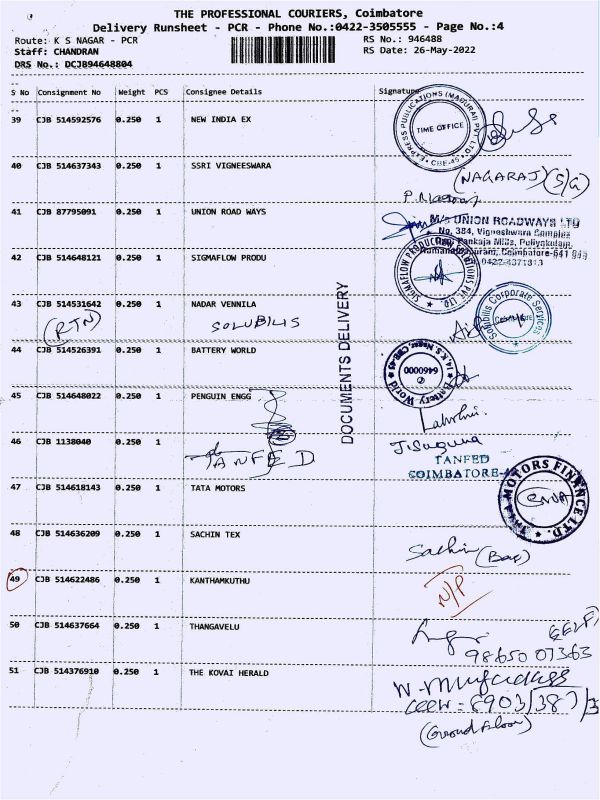 THE PROFESSIONAL COURIERS, Coimbatore
Delivery Runsheet - PCR - Phone No.:0422-3505555 - Page No.:4
Route: K S NAGAR - PCR RS No.: 946488
Staff: CHANDRAN RS Date: 26-May-2022
DRS No.: DCJB94648804
S No Consignment No Weight PCS Consignee Details Signature
39 CJB 514592576 0.250 1 NEW INDIA EX
EXPRESS PUBLICATIONS (MADURAI) PVT LTD CBE-45
TIME OFFICE
40 CJB 514637343 0.250 1 SSRI VIGNEESWARA
(NAGARAJ) (S/G)
P. Nagaraj
41 CJB 87795091 0.250 1 UNION ROAD WAYS
M/s UNION ROADWAYS LTD
No. 384, Vigneshwara Complex
Pankaja Mills, Puliyakulam,
Ramanathapuram, Coimbatore-641 045
0422-4371813
42 CJB 514648121 0.250 1 SIGMAFLOW PRODU
SIGMAFLOW PRODUCTION PVT LTD
43 CJB 514531642 0.250 1 NADAR VENNILA
(RTN) SOLUBILIS
Solubilis Corporate Services
Coimbatore
DOCUMENTS DELIVERY
44 CJB 514526391 0.250 1 BATTERY WORLD
Battery World 14, K.S. Nagar, CBE-45
6460000
45 CJB 514648022 0.250 1 PENGUIN ENGG
Lakshmi
46 CJB 1138040 0.250 1
TANFED
J. Suguna
TANFED
COIMBATORE-
47 CJB 514618143 0.250 1 TATA MOTORS
TATA MOTORS FINANCE LTD.
48 CJB 514636209 0.250 1 SACHIN TEX
Sachin (Box)
49 CJB 514622486 0.250 1 KANTHAMKUTHU
N/P
50 CJB 514637664 0.250 1 THANGAVELU
(SELF)
98650 07363
51 CJB 514376910 0.250 1 THE KOVAI HERALD
(Ground floor)